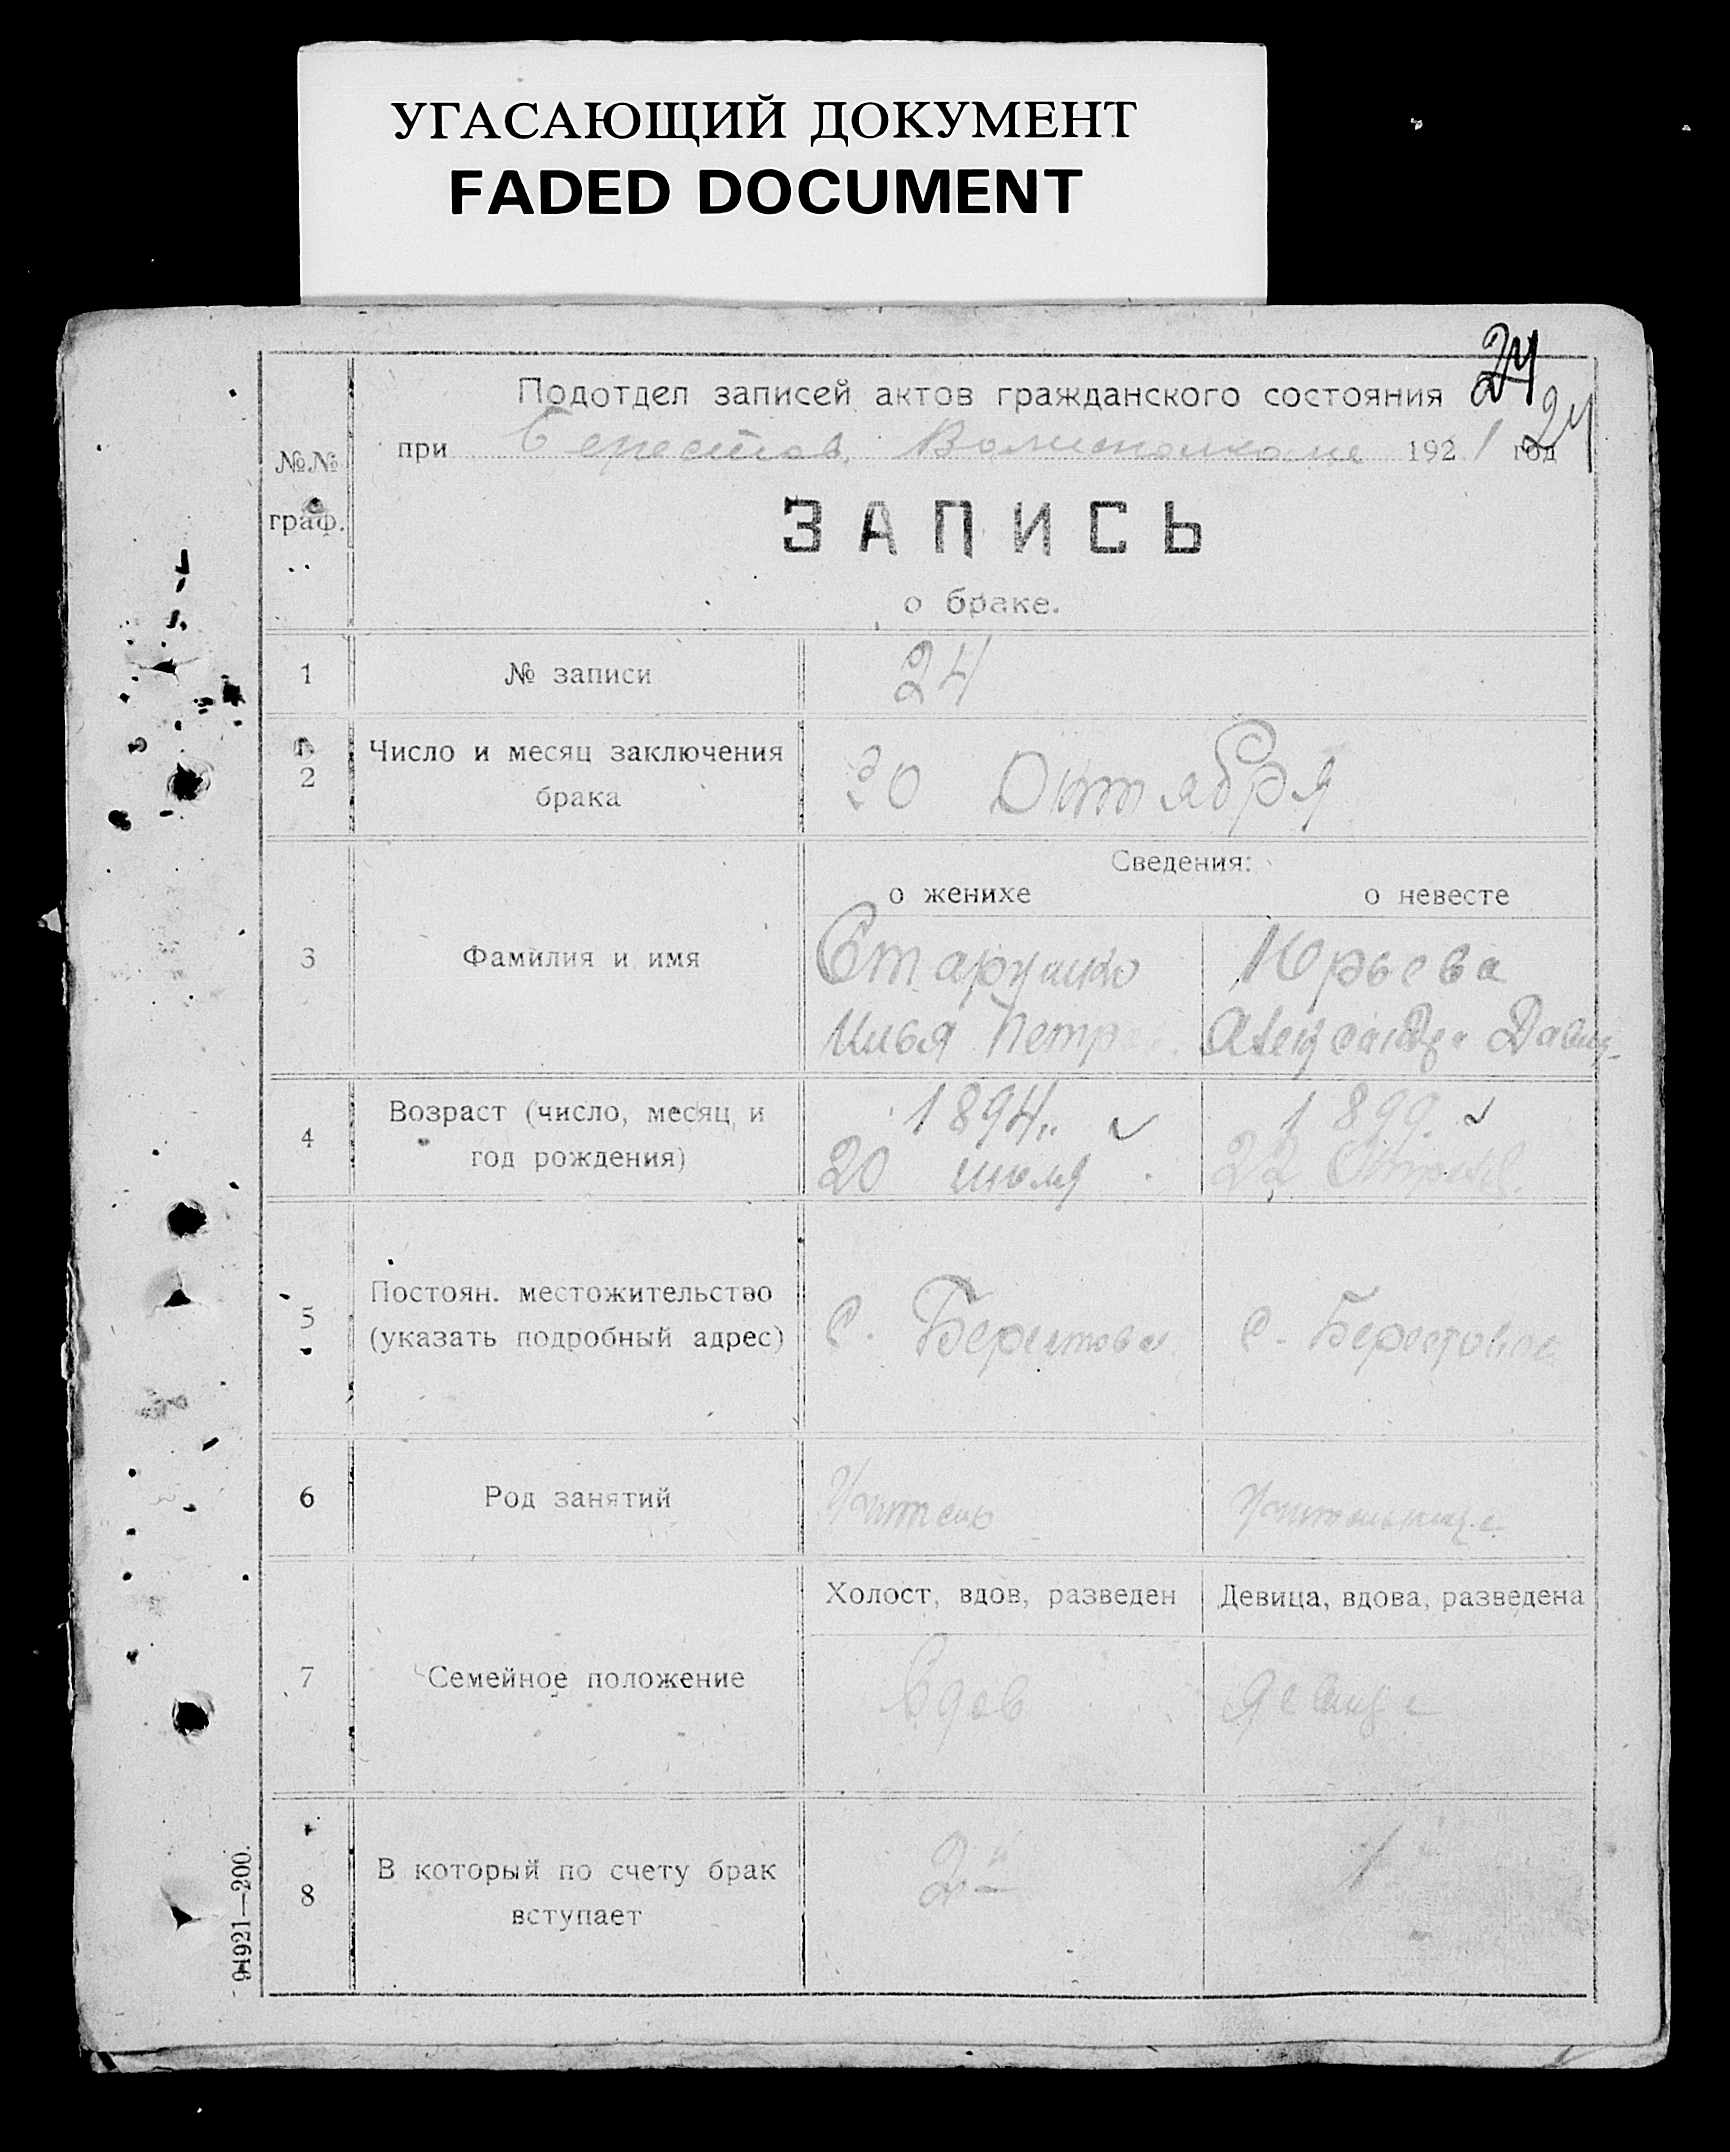 УГАСАЮЩИЙ ДОКУМЕНТ
FADED DOCUMENT
24
Подотдел записей актов гражданского состояния
при Берестов. Волисполкоме 1921 год
24
№№ граф.
ЗАПИСЬ
о браке.
1 № записи 24
2 Число и месяц заключения
брака
30 Октября
Сведения:
о женихе о невесте
3 Фамилия и имя
Старушко Юрьева
Илья Петр Александра Давид-
4 Возраст (число, месяц и
год рождения)
1894 1899.
20 июля 22
5 Постоян. местожительство
(указать подробный адрес)
с. Берестовое с. Берестовое
6 Род занятий Учитель Учительница
Холост, вдов, разведен Девица, вдова, разведена
7 Семейное положение вдов девица
8 В который по счету брак
вступает
2й 1й
94921—200.